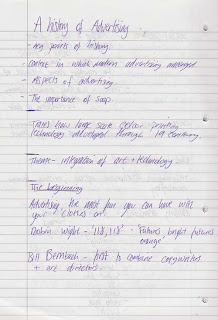 A history of Advertising.
- key points of history.
- context in which modern advertising emerged
- Aspects of advertising.
- The importance of soap.
Traces how large scale colour printing
technology developed through 19th century.
Theme - integration of art + technology.
The beginning
Advertising the most fun you can have with
your clothes on.
Robin Wight - '118,118' 'Futures bright futures
orange'
Bill Bernbach - first to combine copywriters
+ art directors